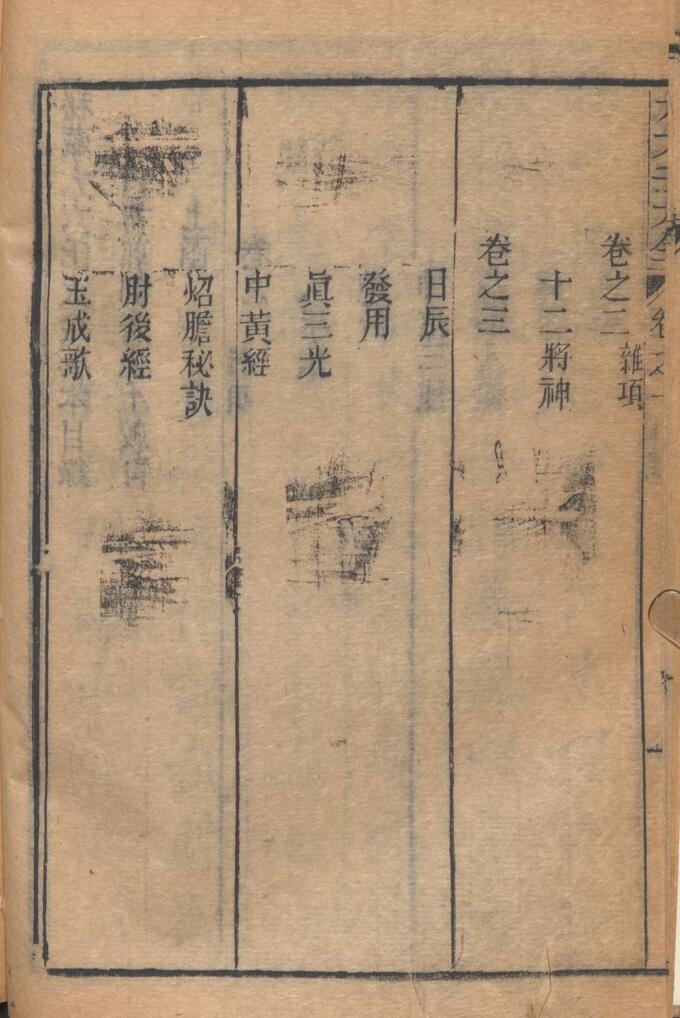 卷之二 雜項
十二將神
卷之三
日辰
發用
眞三光
中黃經
炤膽秘訣
肘後經
玉成歌